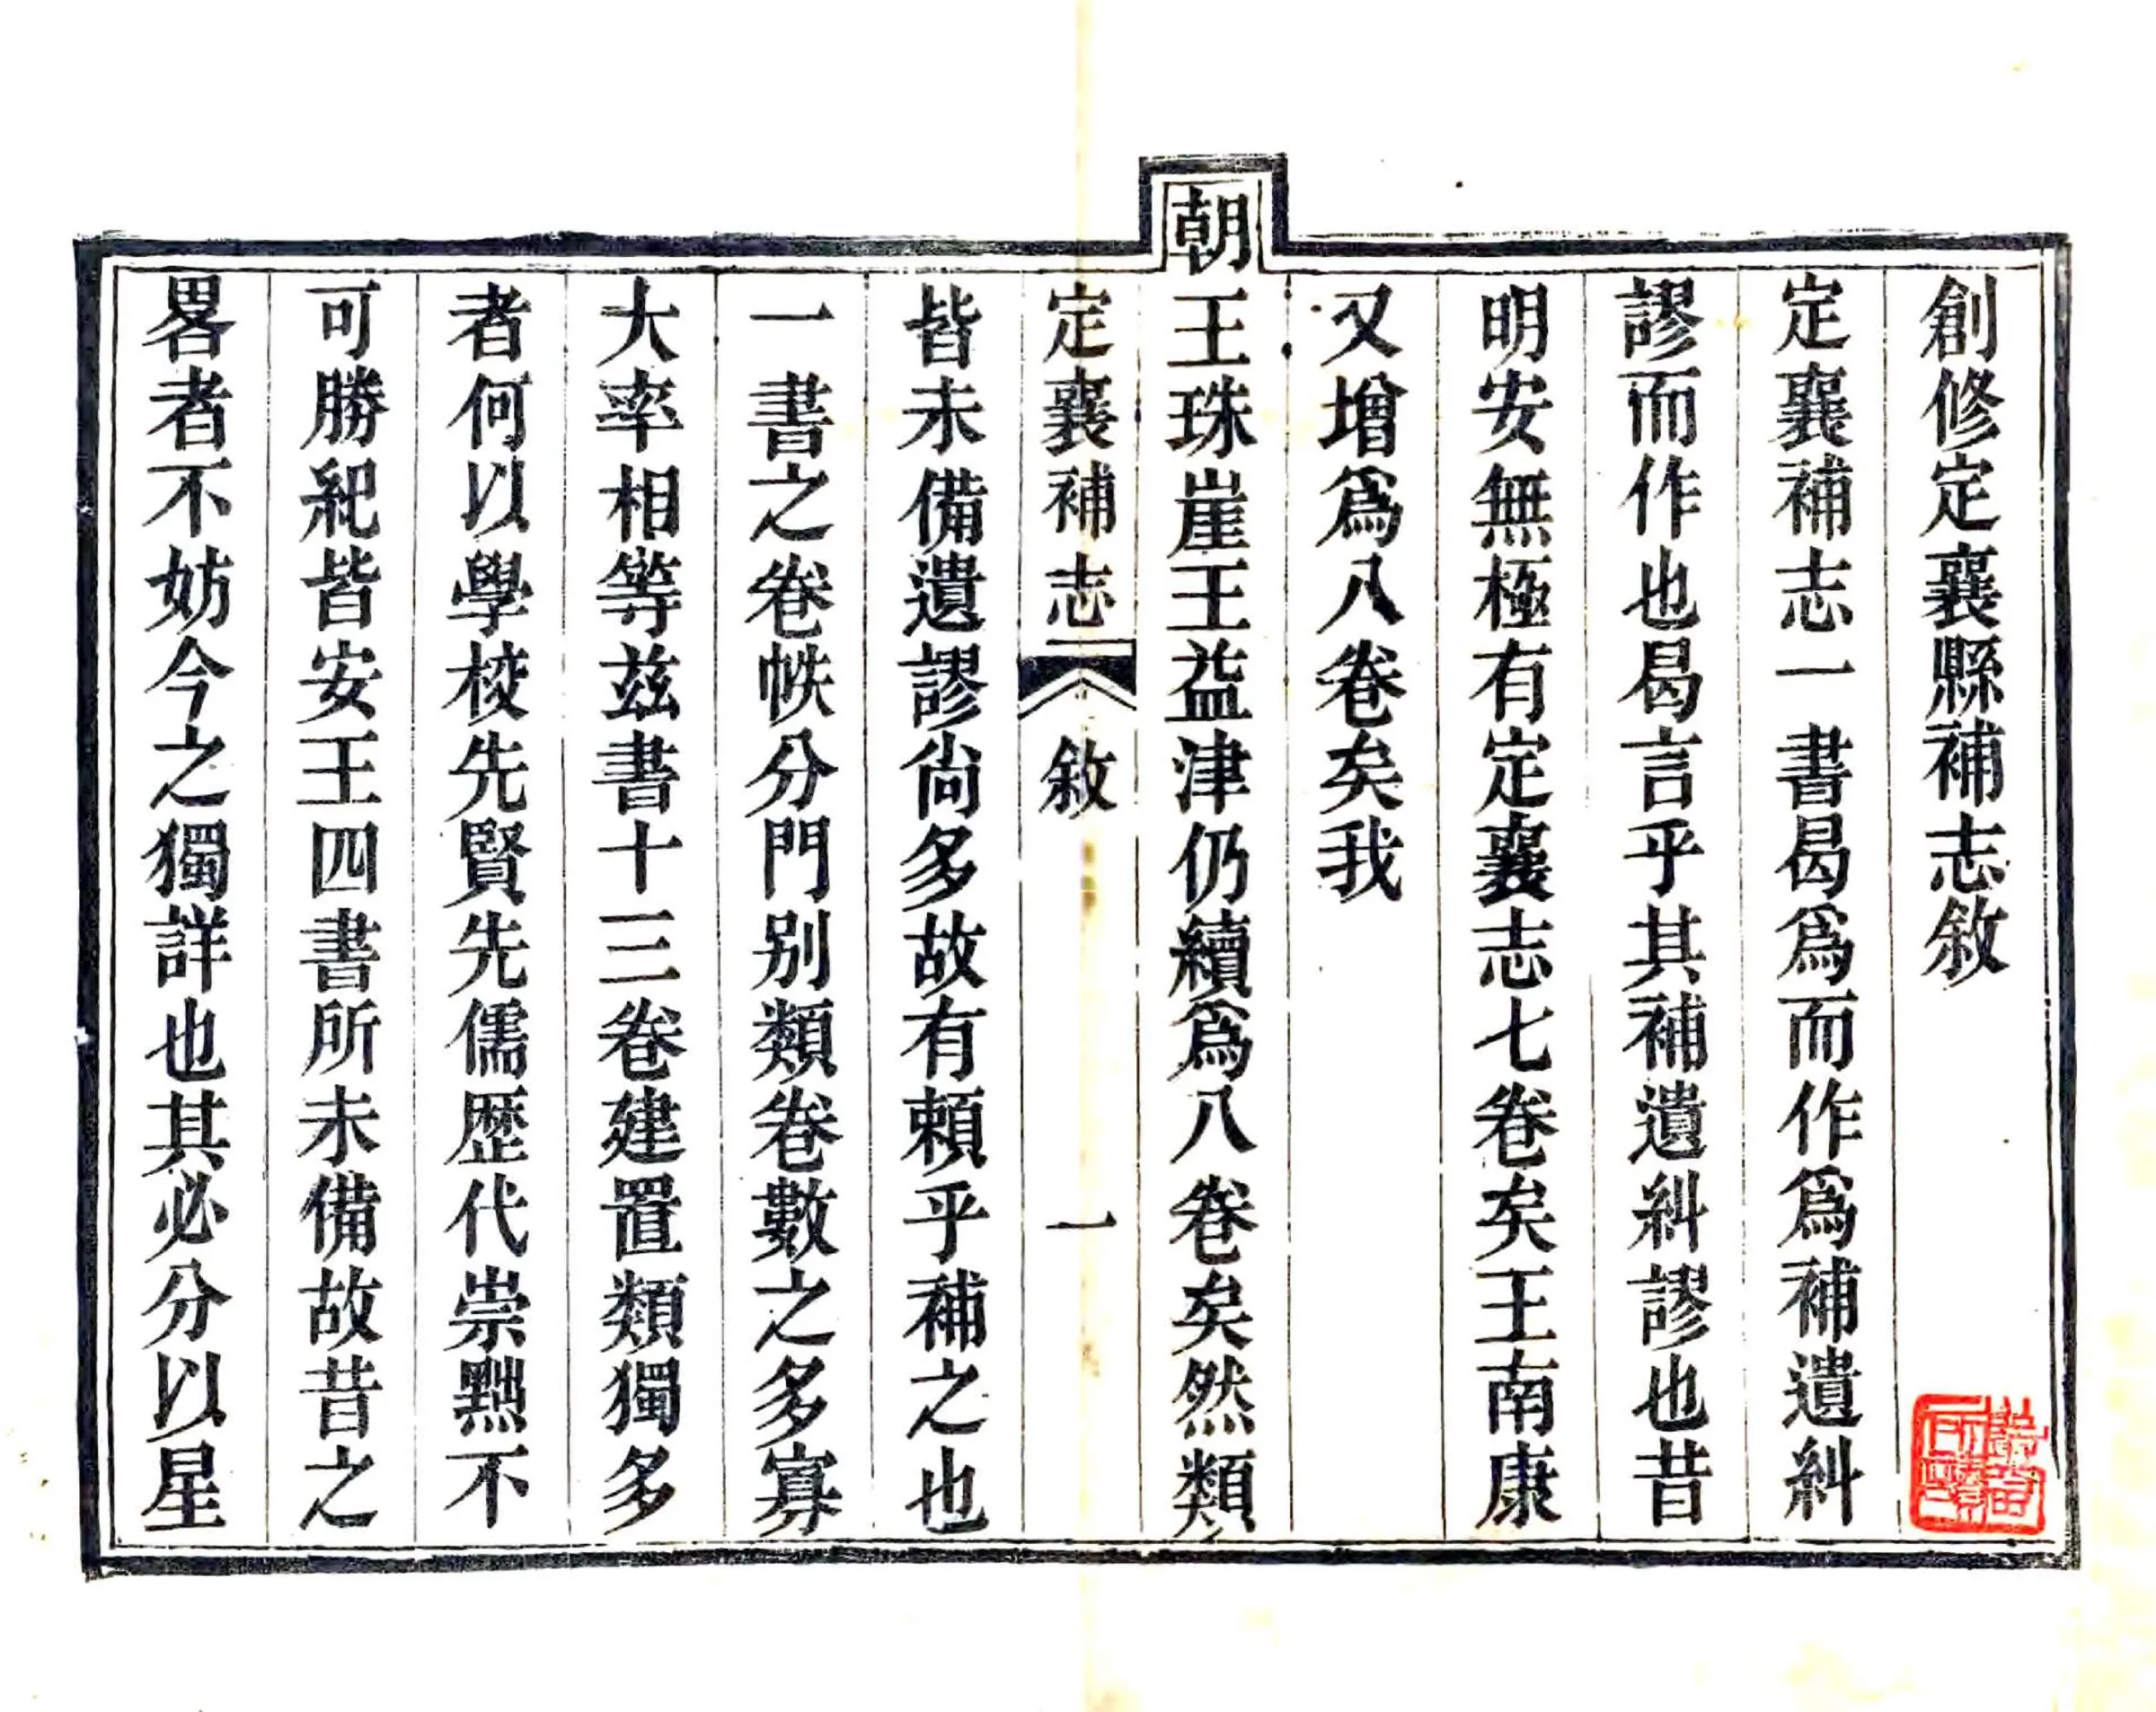 創修定襄縣補志敘
定襄補志一書曷爲而作爲補遺糾
謬而作也曷言乎其補遺糾謬也昔
明安無極有定襄志七卷矣王南康
又增爲八卷矣我
朝王珠崖王益津仍續爲八卷矣然類
定襄補志 敘 一
皆未備遺謬尙多故有頼乎補之也
一書之卷帙分門别類卷數之多寡
大率相等兹書十三卷建置類獨多
者何以學校先賢先儒歴代崇黜不
可勝紀皆安王四書所未備故昔之
畧者不妨今之獨詳也其必分以星